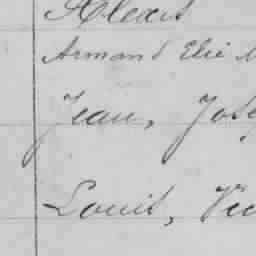 Alexis
Armand Elie
Jean, Jos
Louis, Vic